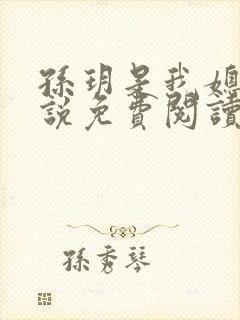 孫玥是我媳
說免費閱讀
孫秀琴